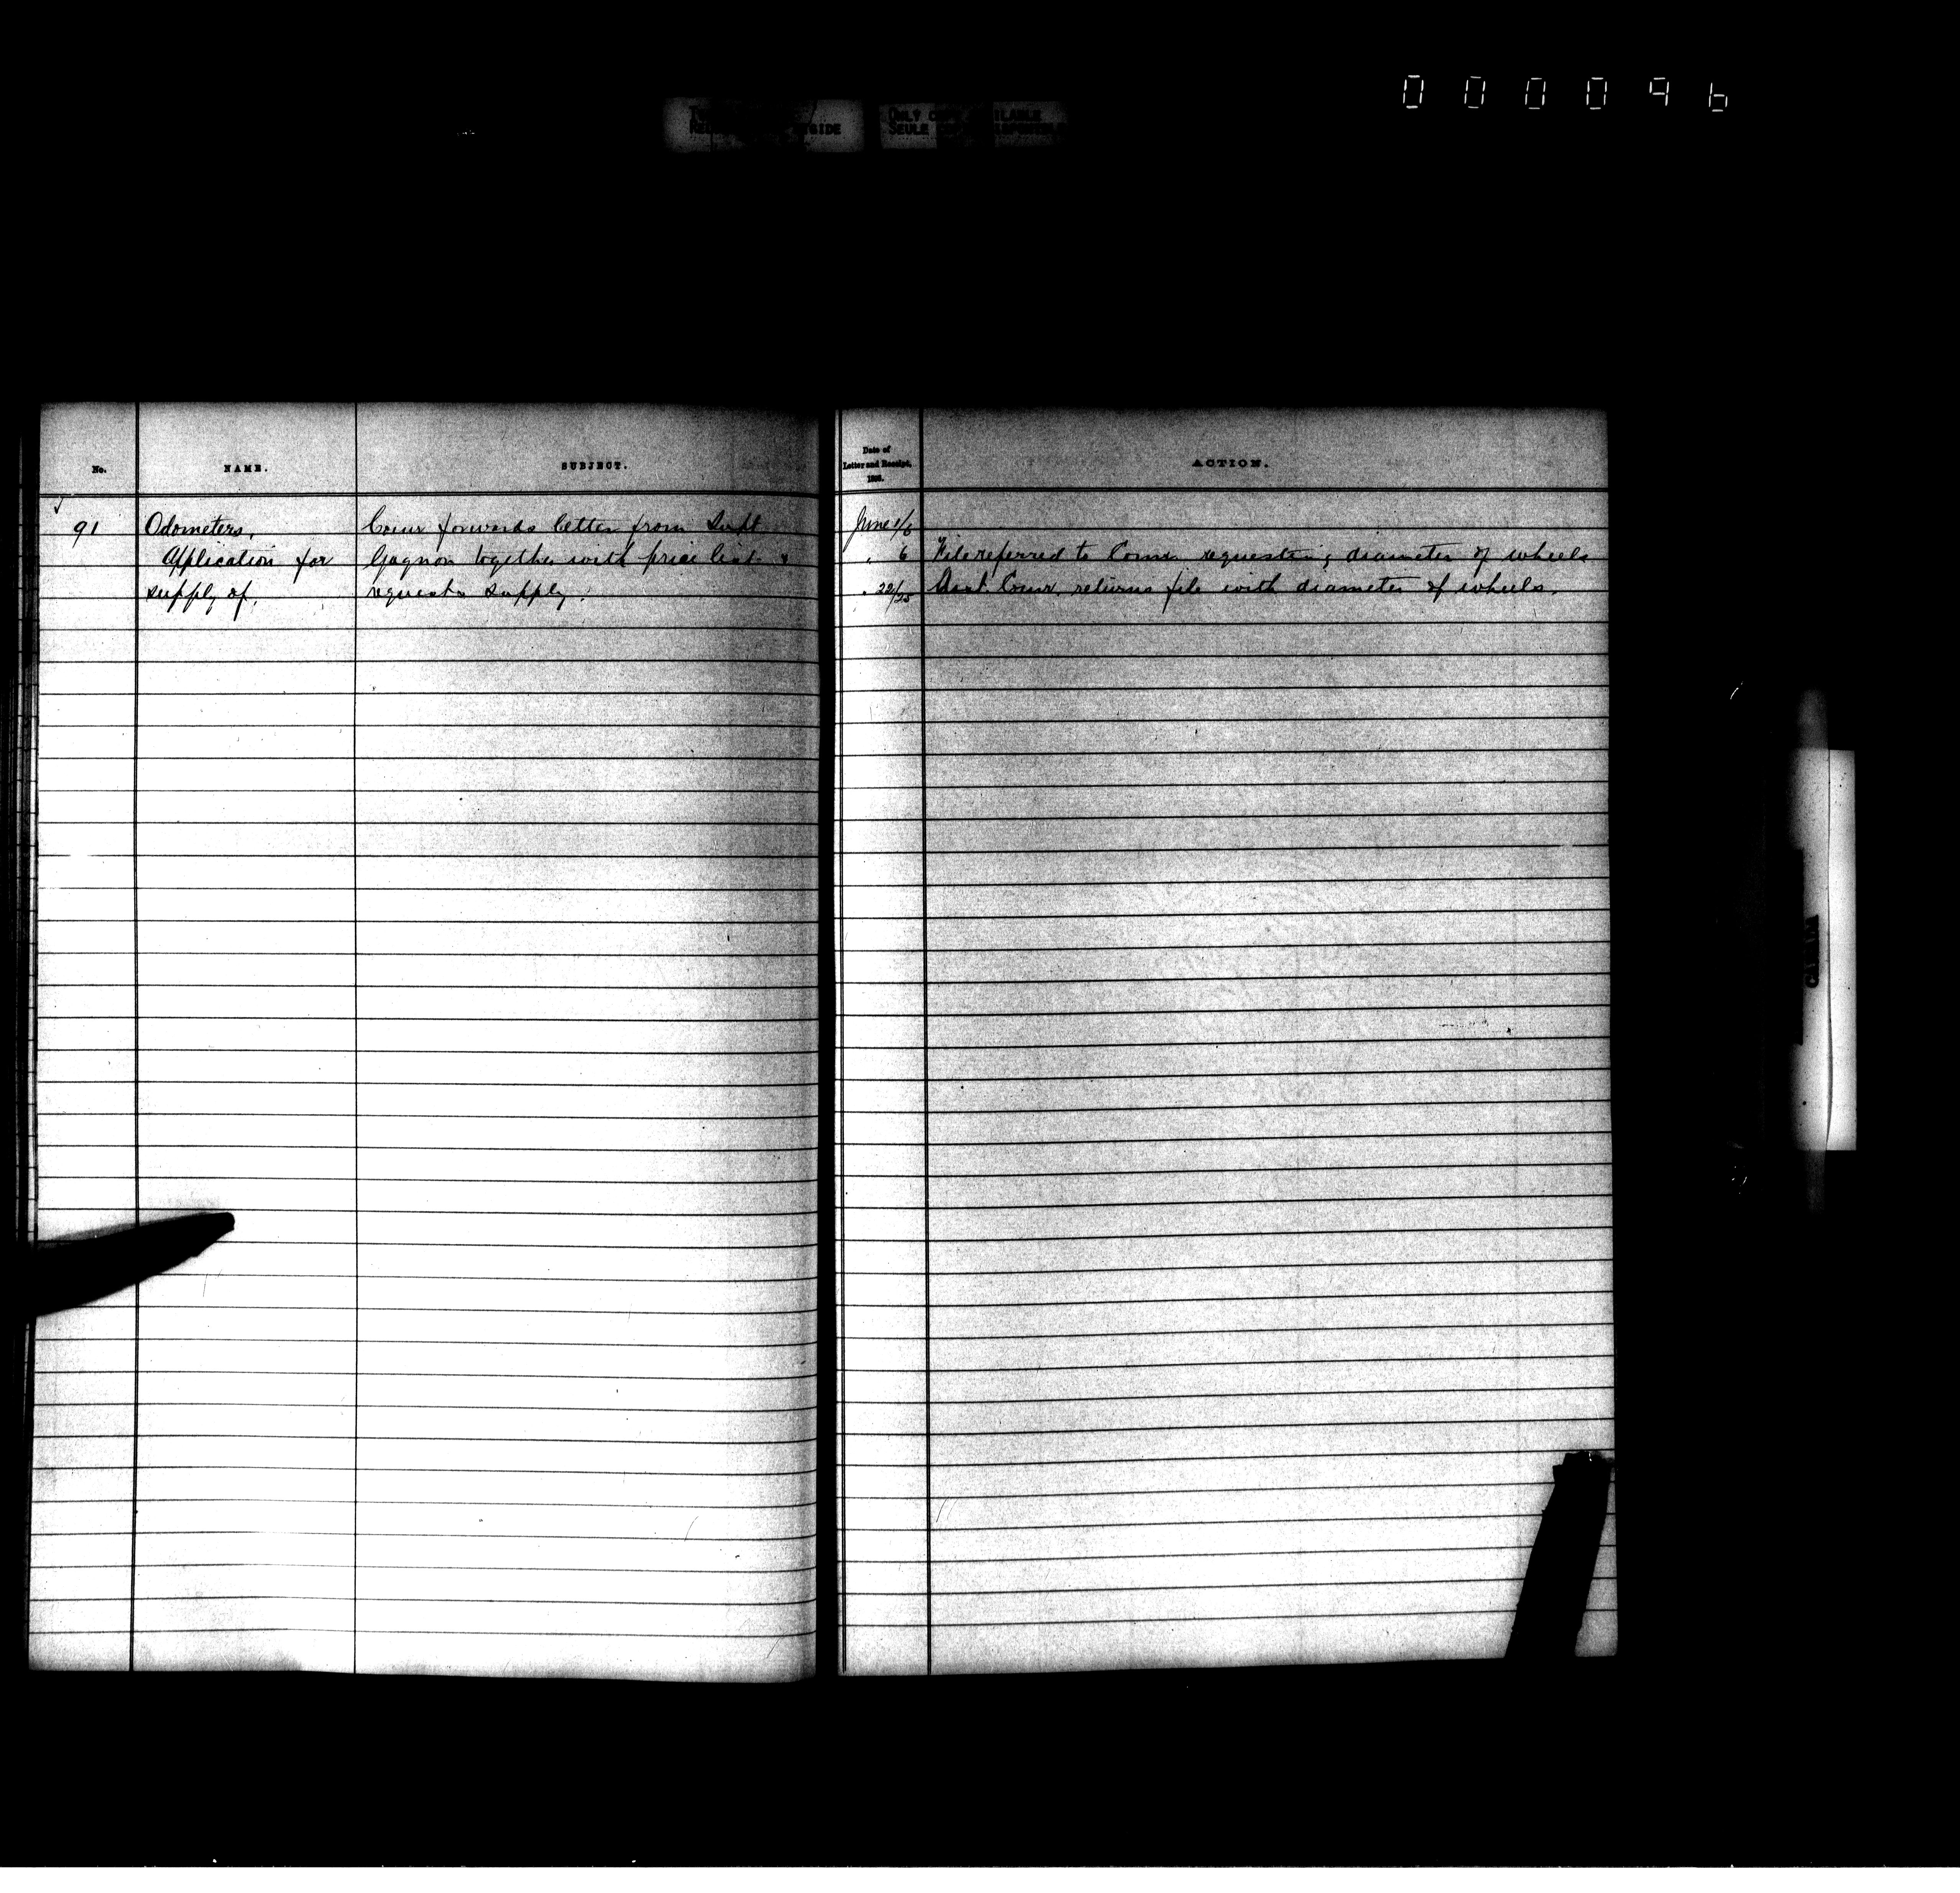 000096
ONLY COPY AVAILABLE
SEULE
No.
NAME.
SUBJECT.
Date of
Letter and Receipt,
188
ACTION.
91
Odometers,
Application for
supply of.
Comr forwards letter from Supt
Gagnon together with price list &
requests supply.
June 1/6
" 6
" 22/25
File referred to Comr requesting diameter of wheels
Asst. Comr. returns file with diameter of wheels.